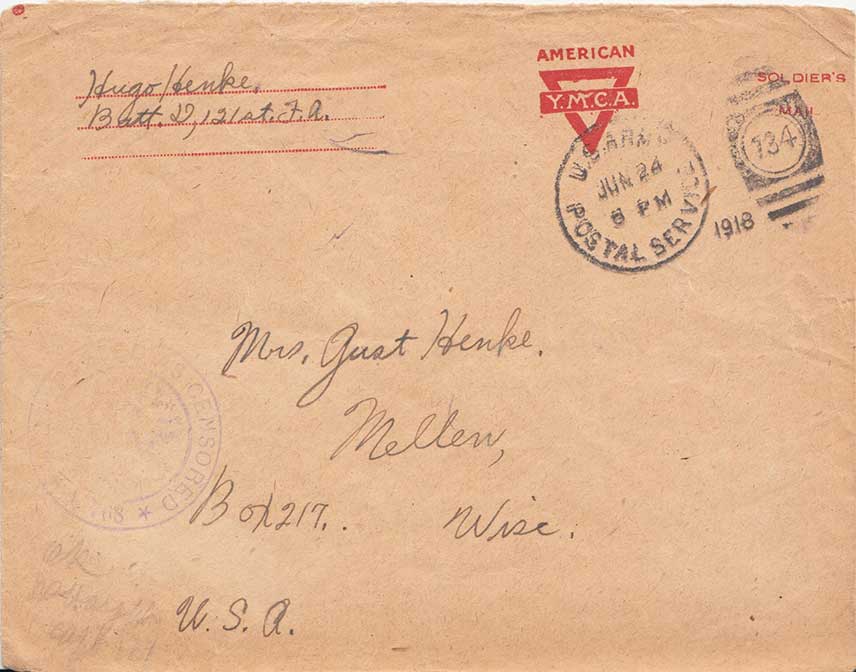 Hugo Henke.
Batt. D, 121st. F.A.
AMERICAN
Y.M.C.A.
SOLDIER'S
MAIL
U.S. ARMY
JUN 24
6 PM
POSTAL SERVICE
1918
134
Mrs. Gust Henke.
Mellen,
Box 217. . Wisc.
U. S. A.
CENSORED